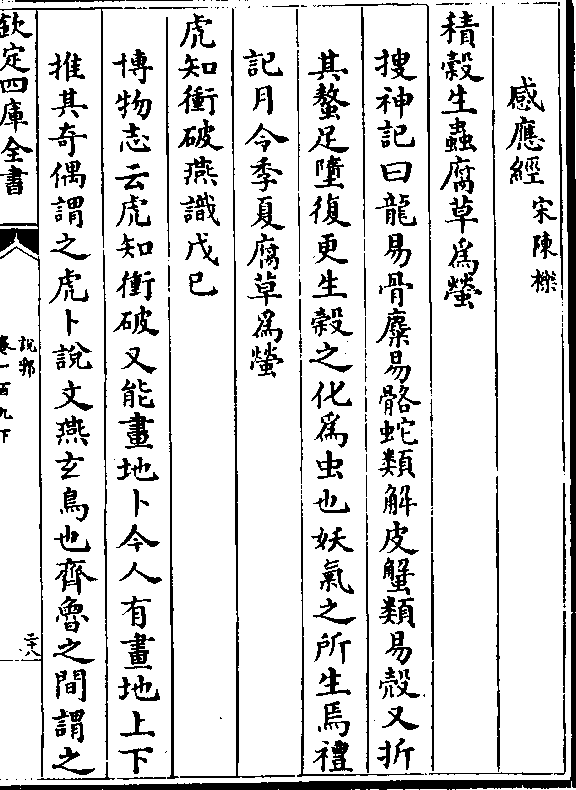 感應經 宋陳櫟
積穀生蟲腐草為螢
搜神記曰龍易骨麋易骼蛇類解皮蟹類易殻又折
其螯足墮復更生榖之化為虫也妖氣之所生焉禮
記月令季夏腐草為螢
虎知衝破燕識戊已
博物志云虎知衝破又能畫地卜今人有畫地上下
推其奇偶謂之虎卜說文燕玄鳥也齊魯之間謂之
欽定四庫全書
說郛
卷一百九下
二十八